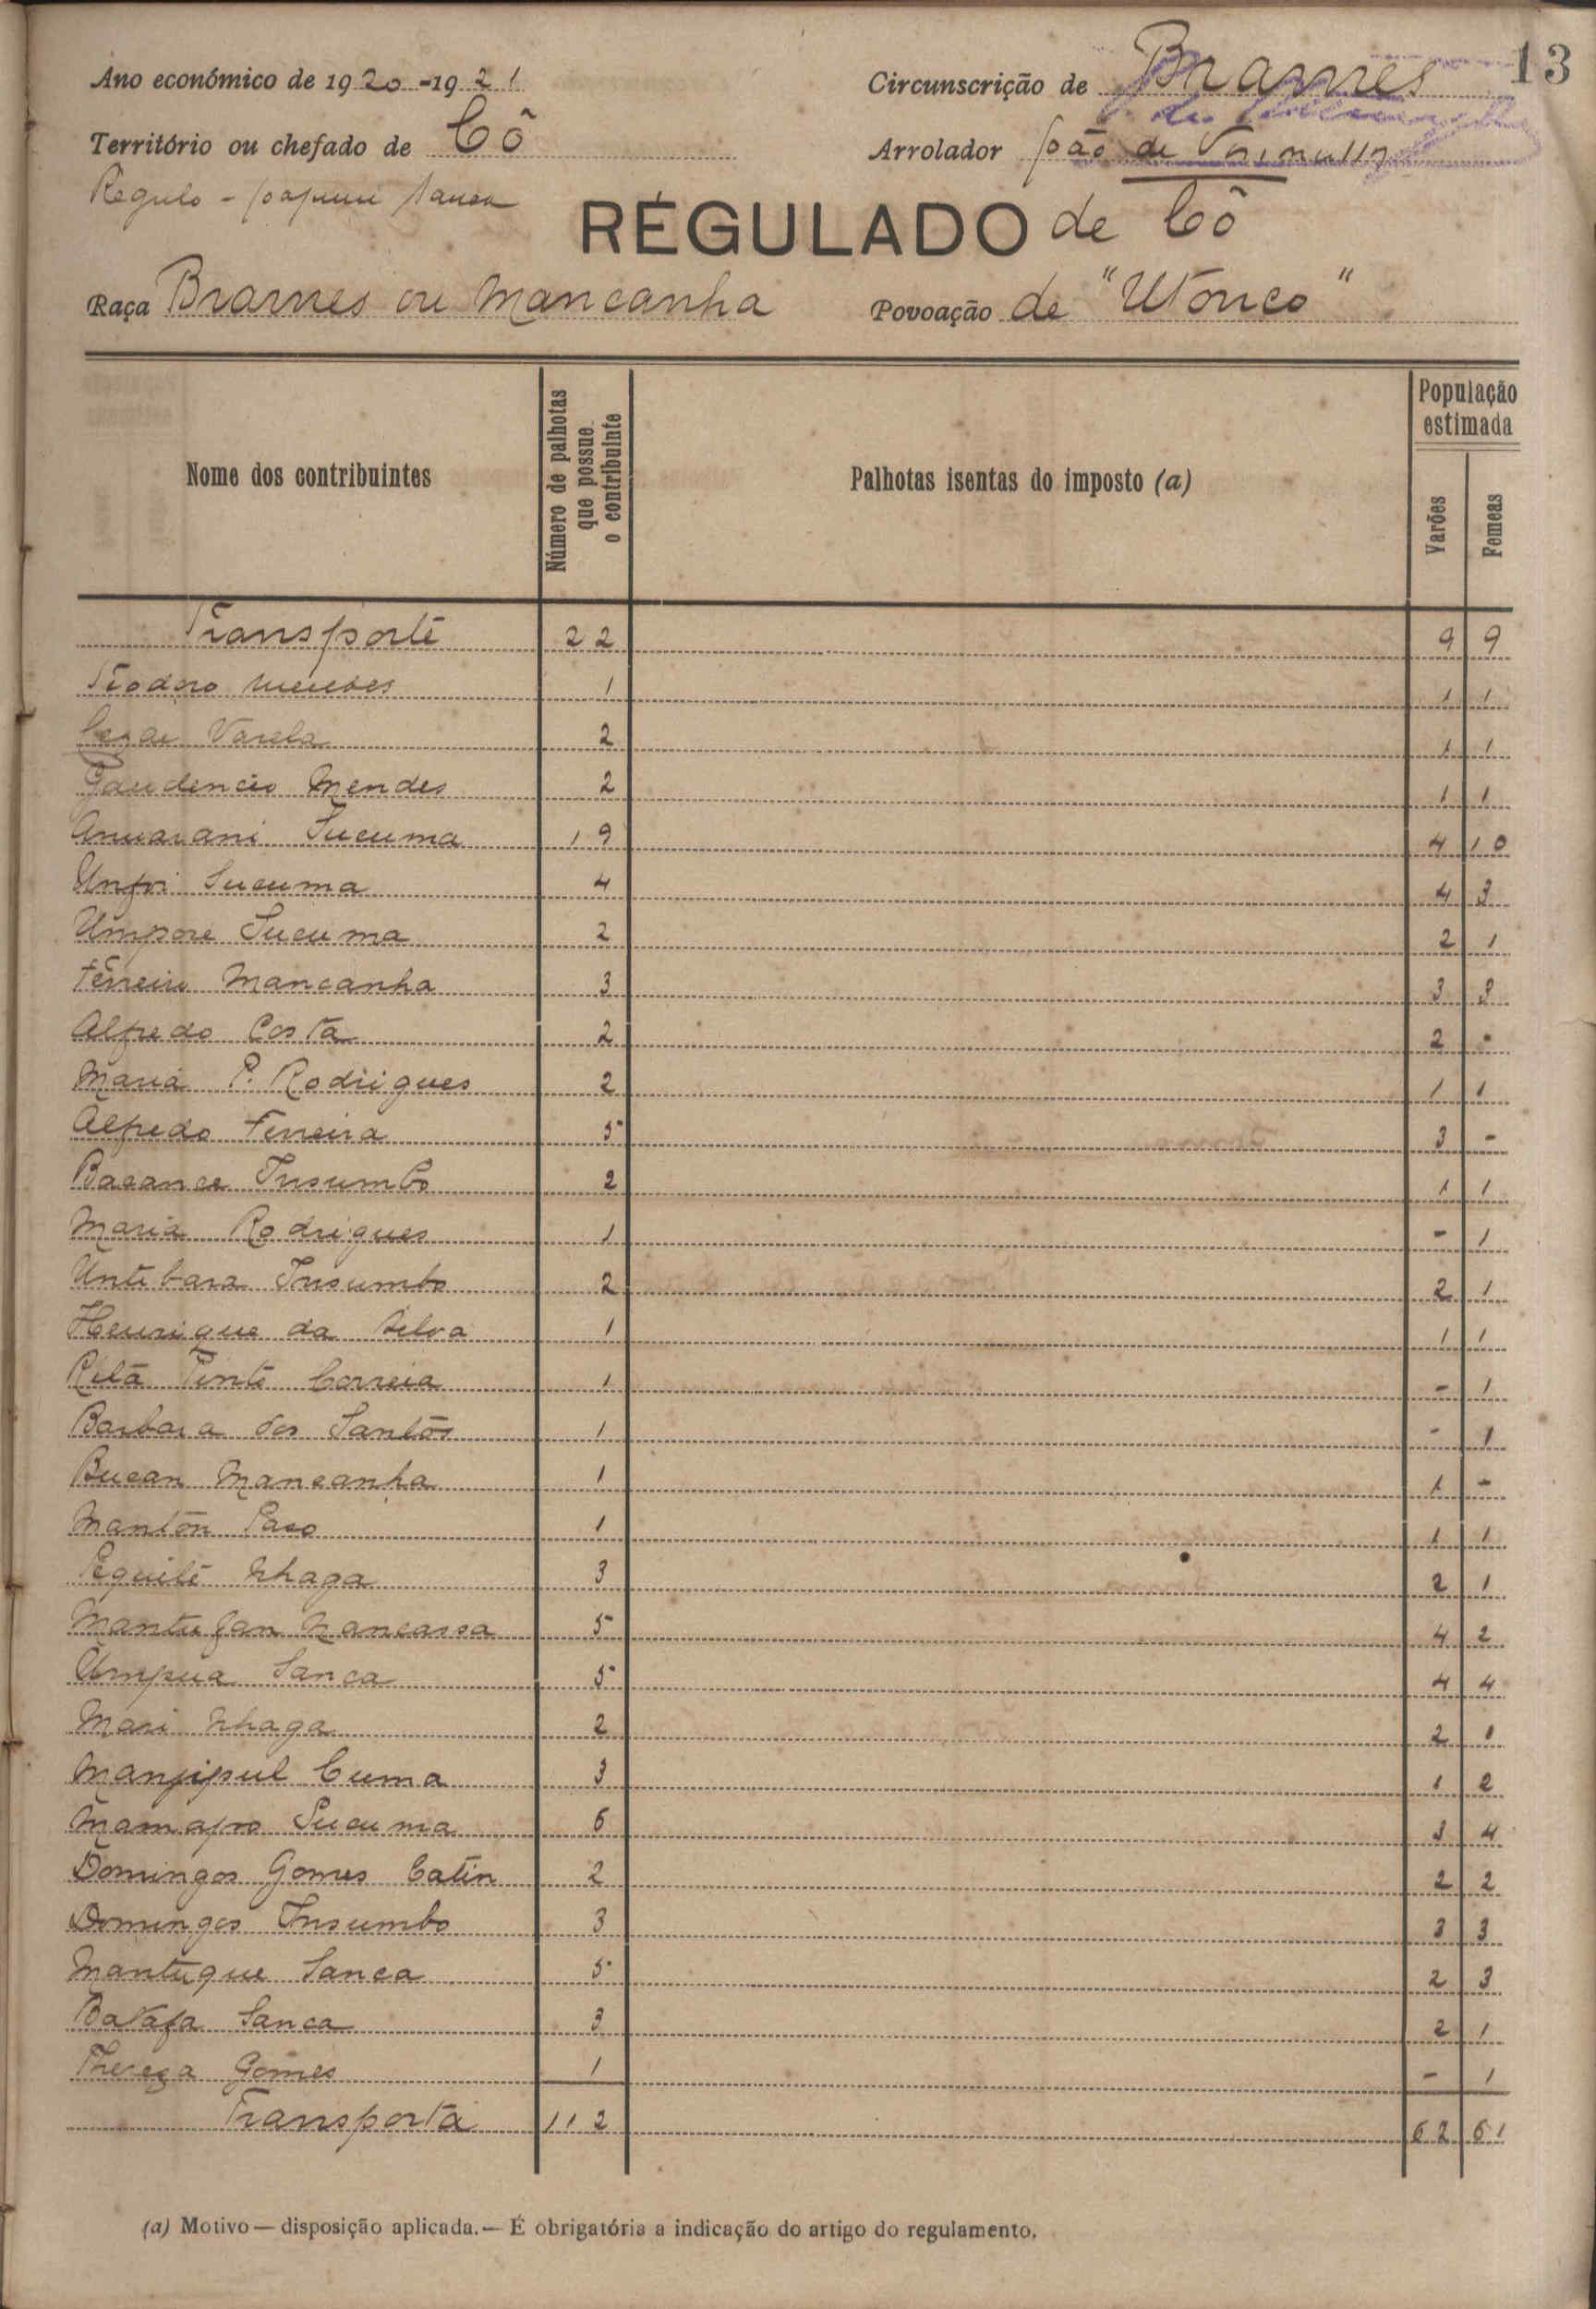 13
Ano económico de 1920-1921
Circunscrição de Brames
Território ou chefado de Cô
Arrolador João de
Regulo -
RÉGULADO de Cô
Raça Brames ou Mancanha
Povoação de "Utonco"
Nome dos contribuintes
Número de palhotas que possue o contribuinte
Palhotas isentas do imposto (a)
População estimada
Varões
Femeas
Transporte 22 9 9
Teodoro Mendes 1 1 1
Varela 2 1 1
Gaudencio Mendes 2 1 1
Anuarani Sucuma 19 4 10
Sucuma 4 4 3
Umpore Sucuma 2 2 1
Ferreiro Mancanha 3 3 3
Alfredo Costa 2 2 -
Maria P. Rodrigues 2 1 1
Alfredo Ferreira 5 3 -
Bacance Insumbo 2 1 1
Maria Rodrigues 1 - 1
Untubara Insumbo 2 2 1
Henrique da Silva 1 1 1
Rita Pinto Correia 1 - 1
Barbara dos Santos 1 - 1
Bucan Mancanha 1 1 -
Manton Caco 1 1 1
Pequite Nhaga 3 2 1
Mantufan Nancassa 5 4 2
Umpua Sanca 5 4 4
Mari Nhaga 2 2 1
Manjipul Cuma 3 1 2
Mamapro Sucuma 6 3 4
Domingos Gomes Catin 2 2 2
Domingos Insumbo 3 3 3
Mantuque Sanca 5 2 3
Batafa Sanca 3 2 1
Thereza Gomes 1 - 1
Transporta 112 62 61
(a) Motivo — disposição aplicada. — É obrigatória a indicação do artigo do regulamento.